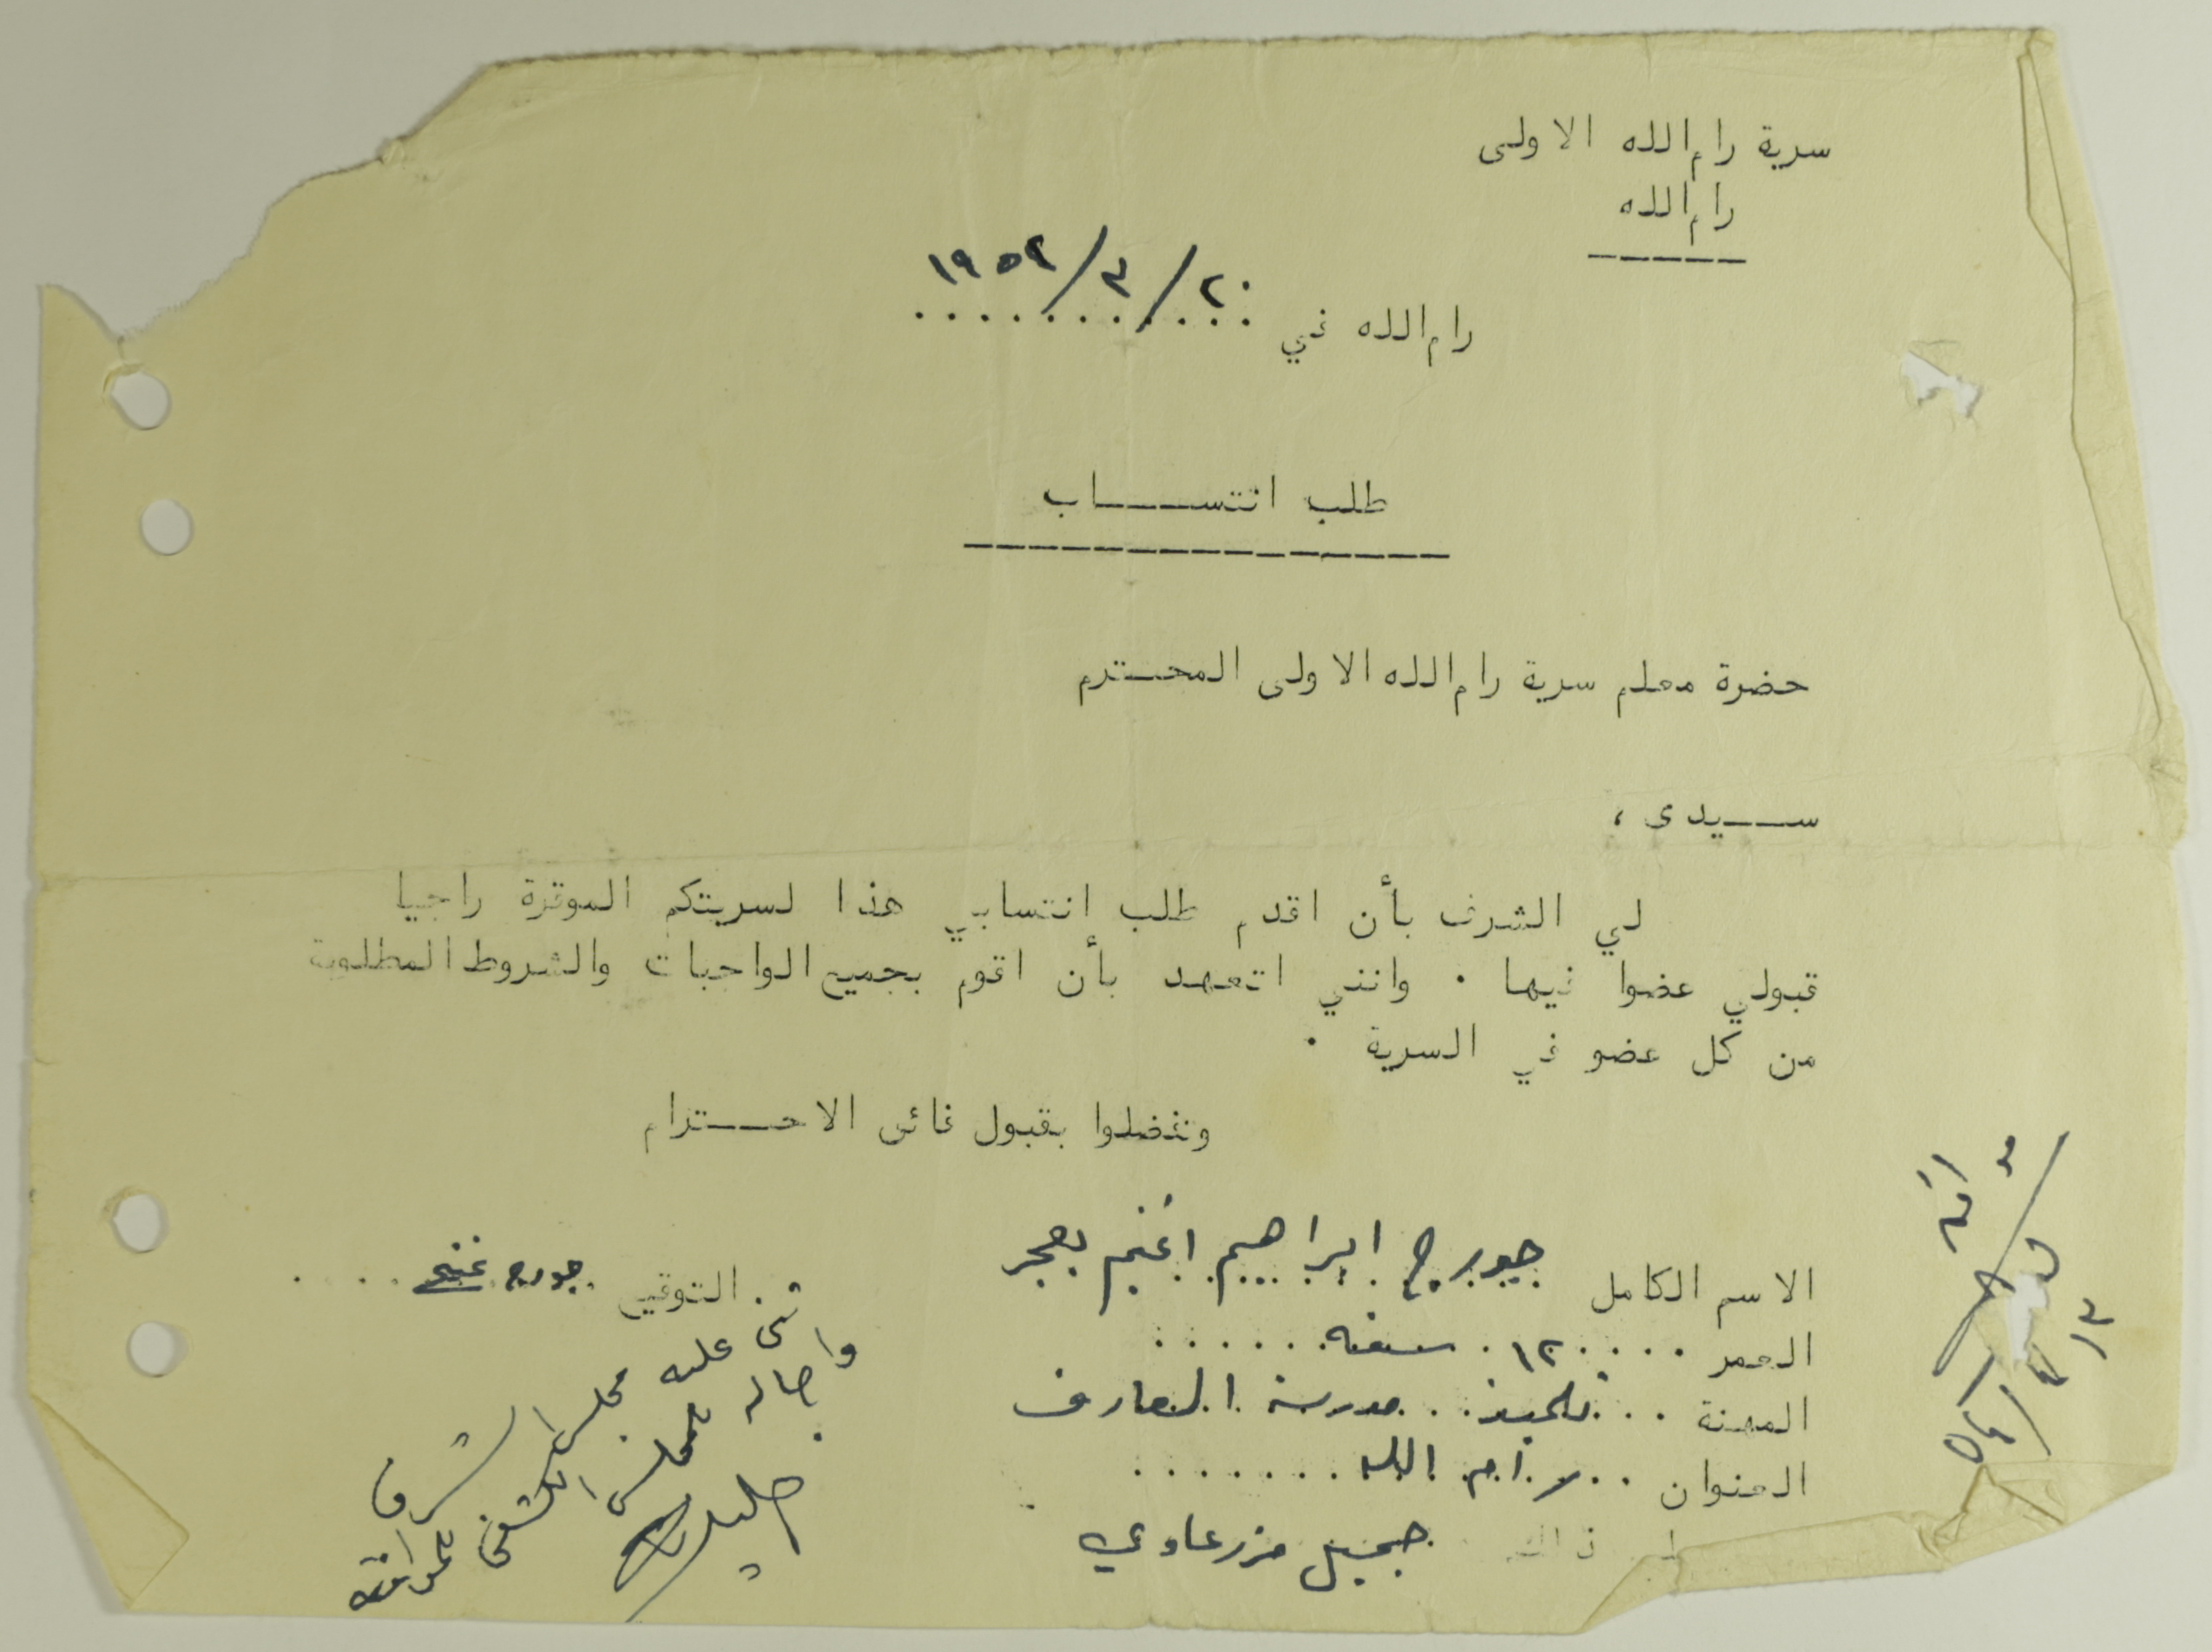 سرية رام الله الاولى
رام الله
رام الله في ٢٠/٣/١٩٥٤
طلب انتساب
حضرة معلم سرية رام الله الاولى المحترم
سيدى ،
لي الشرف بأن اقدم طلب انتسابي هذا لسريتكم الموقرة راجيا
قبولي عضوا فيها . وانني اتعهد بأن اقوم بجميع الواجبات والشروط المطلوبة
من كل عضو في السرية .
وتفضلوا بقبول فائق الاحترام
الاسم الكامل جورج ابراهيم اغنيم بعجر
التوقيع جورج غنيم
العمر ١٢ سنه
المهنة تلميذ مدرسة المعارف
العنوان رام الله
جميل مزرعاوي
عليه مجلس الشرف
واحاله لمجلس الكشفي للموافقه